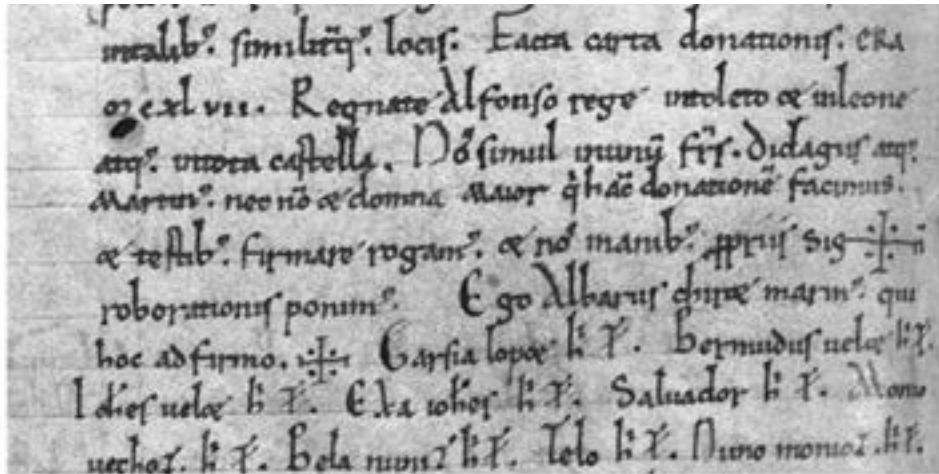 intalib᾽. similit̄q᾽. locis. Facta carta donationis. era
c̄xlvii. Regnate Alfonso rege intoleto & inleone
atq᾽. intota castella. Nos̄ simul inunū fr̄s. Didagus atq᾽.
Martin᾽. necnō & domna Maior q̄ hāc donationē facimus.
& testib᾽. firmare rogam᾽. & nō manib᾽. ꝓpriis sig ✠ n̄
roborationis ponim᾽. Ego Albarus marin᾽. qui
hoc adfirmo. ✠ Garsia lop& h̄ t̄. Bermudus uel& h̄ t̄.
Ioh̄es uel& h̄ t̄. Exa ioh̄es h̄ t̄. Saluador h̄ t̄. Monio
h̄ t̄. Bela h̄ t̄. Telo h̄ t̄. Nuno h̄ t̄.